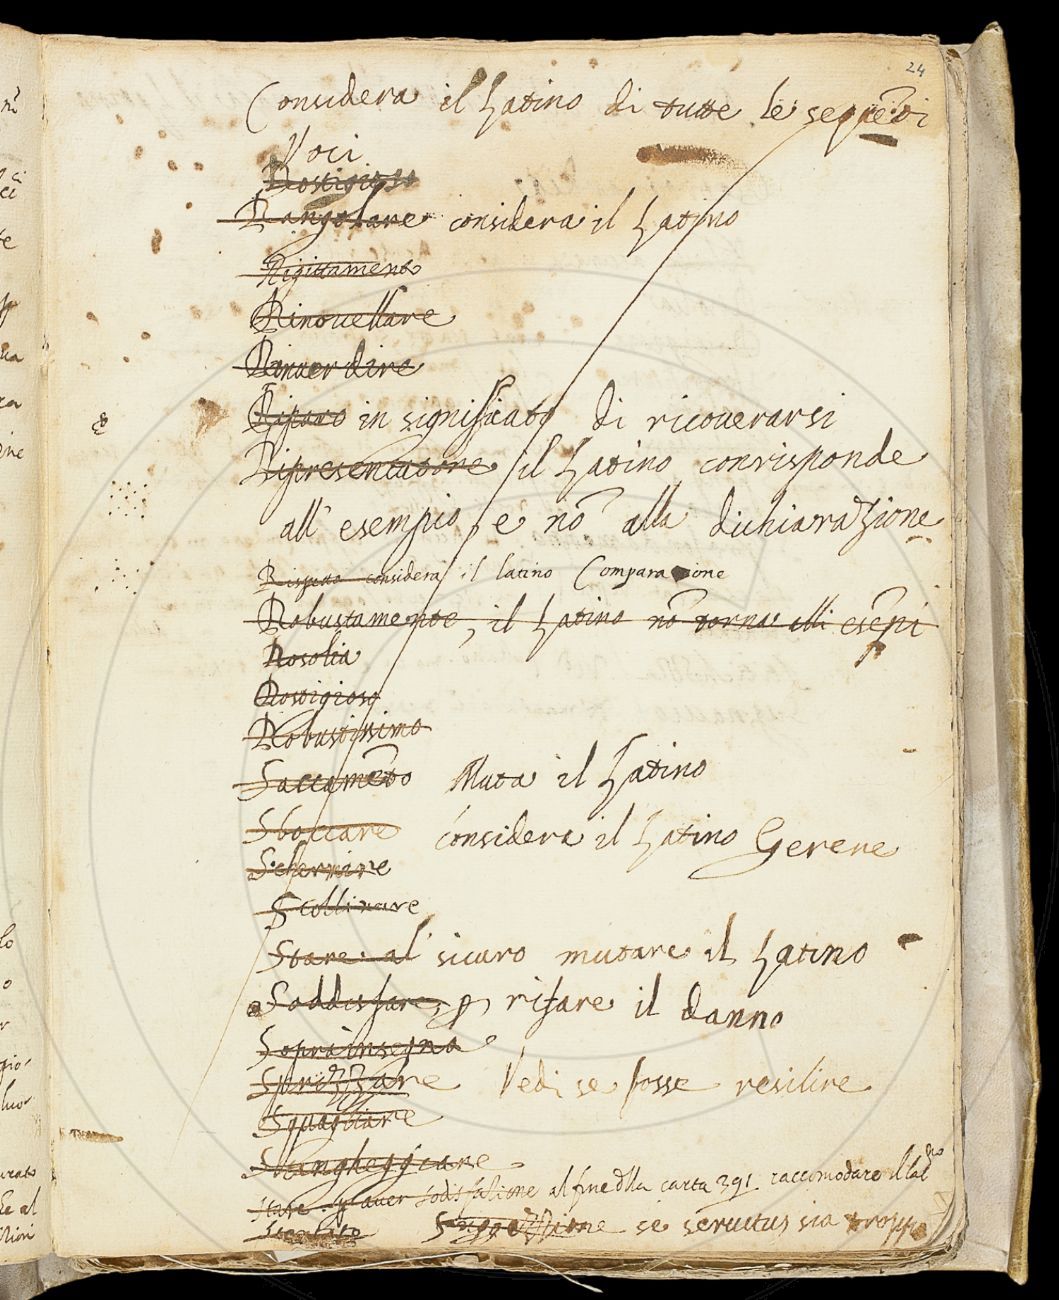 24
Considera il Latino di tutte le seguẽti
Voci
Rostigioso
Rangolare considera il Latino
Rigittamento
Rinouellare
Rinuerdire
Riparo in significato di ricouerarsi
Ripresentatore il Latino conrisponde
all' esempio, e nõ alla dichiarazione
considera il latino Comparazione
Robustamente, il Latino nõ torna alli esẽpi
Rosolia
Rostigioso
Robustissimo
Saccamẽto Muta il Latino
Sboccare considera il Latino Gerere
Schermire
Scollinare
Stare al' sicuro mutare il Latino
Soddisfare, p rifare il danno
Soprainsegna
Sprizzare Vedi se fosse resilire
Squagliare
Stangheggiare
Stare p auer sodisfazione al fine dlla carta 391 raccomodare il latno
Suggezzione se seruitus sia troppo